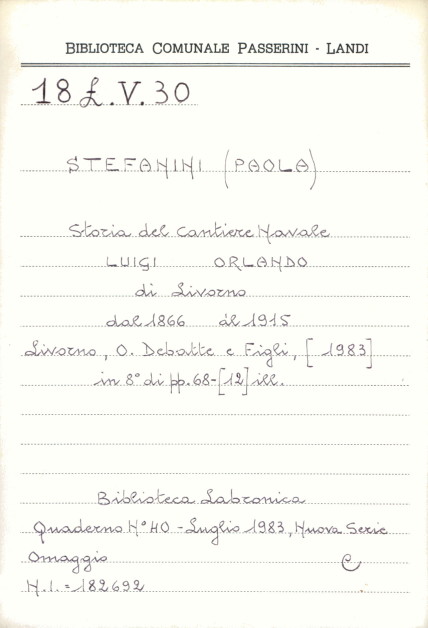 BIBLIOTECA COMUNALE PASSERINI - LANDI
18 £.V.30
STEFANINI (PAOLA)
Storia del Cantiere Navale
LUIGI ORLANDO
di Livorno
dal 1866 al 1915
Livorno, O. Debatte e Figli, [1983]
in 8° di pp. 68-[12] ill.
Biblioteca Labronica
Quaderno N° 40 - Luglio 1983, Nuova Serie
Omaggio C
N.I. = 182692